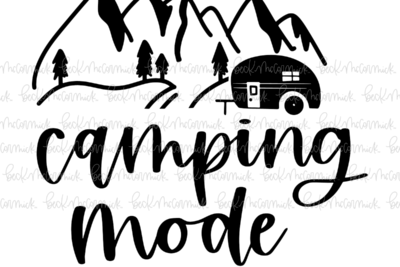 camping
mode